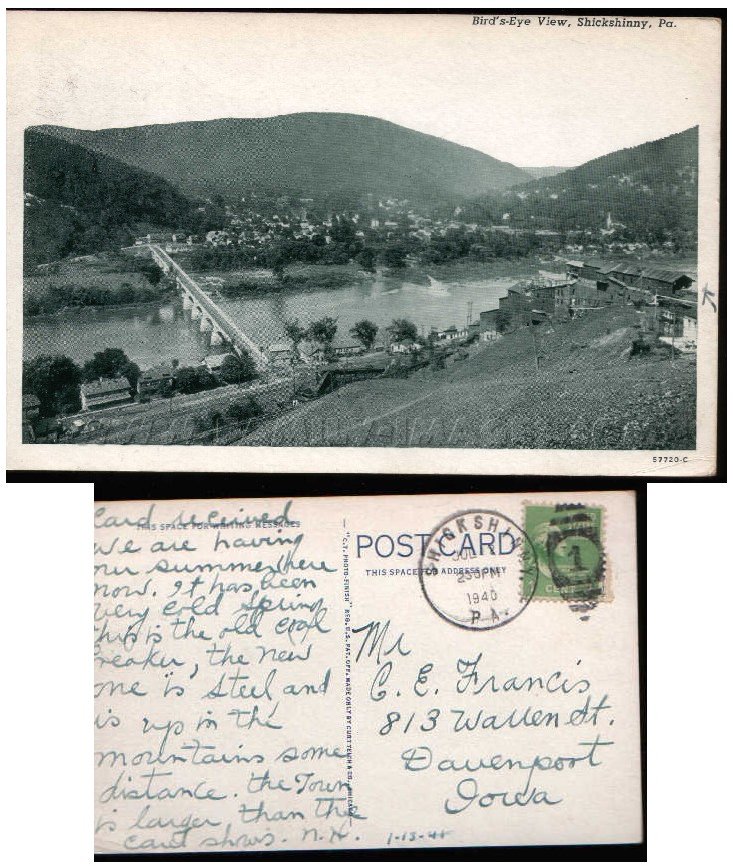 Bird's-Eye View, Shickshinny, Pa.
57720-C
THIS SPACE FOR WRITING MESSAGES
Card received
we are having
our summer here
now. It has been
very cold Spring
this is the old coal
breaker, the new
one is steel and
is up in the
mountains some
distance. the Town
is larger than the
card shows. N.H.
1-13-41
"C.T. PHOTO-FINISH" REG. U.S. PAT. OFF. MADE ONLY BY CURT TEICH & CO., CHICAGO
POST CARD
THIS SPACE FOR ADDRESS ONLY
SHICKSHINNY
JUL
230PM
1940
PA.
1
CENT
Mr
C. E. Francis
813 Warren St.
Davenport
Iowa